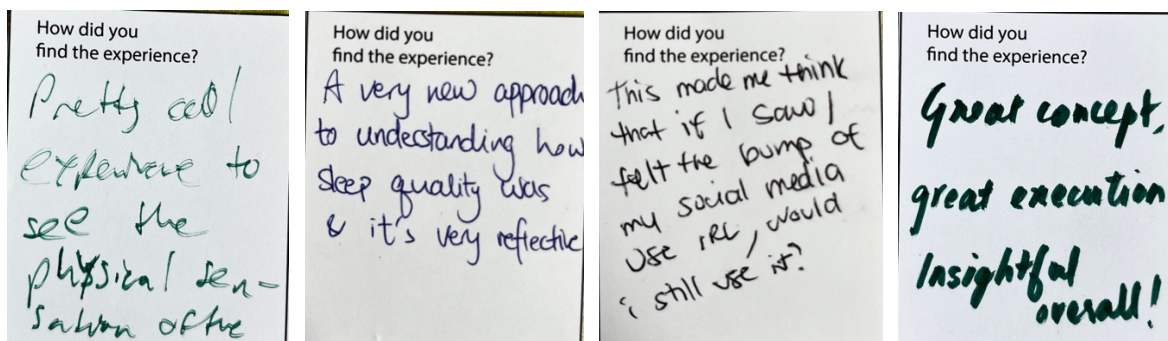 How did you
find the experience?
Pretty cool
experience to
see the
physical sen-
sation of the
How did you
find the experience?
A very new approach
to understanding how
sleep quality was
& it's very reflective
How did you
find the experience?
this made me think
that if I saw /
felt the bump of
my social media
use IRL, would
i still use it?
How did you
find the experience?
Great concept,
great execution
Insightful
overall!